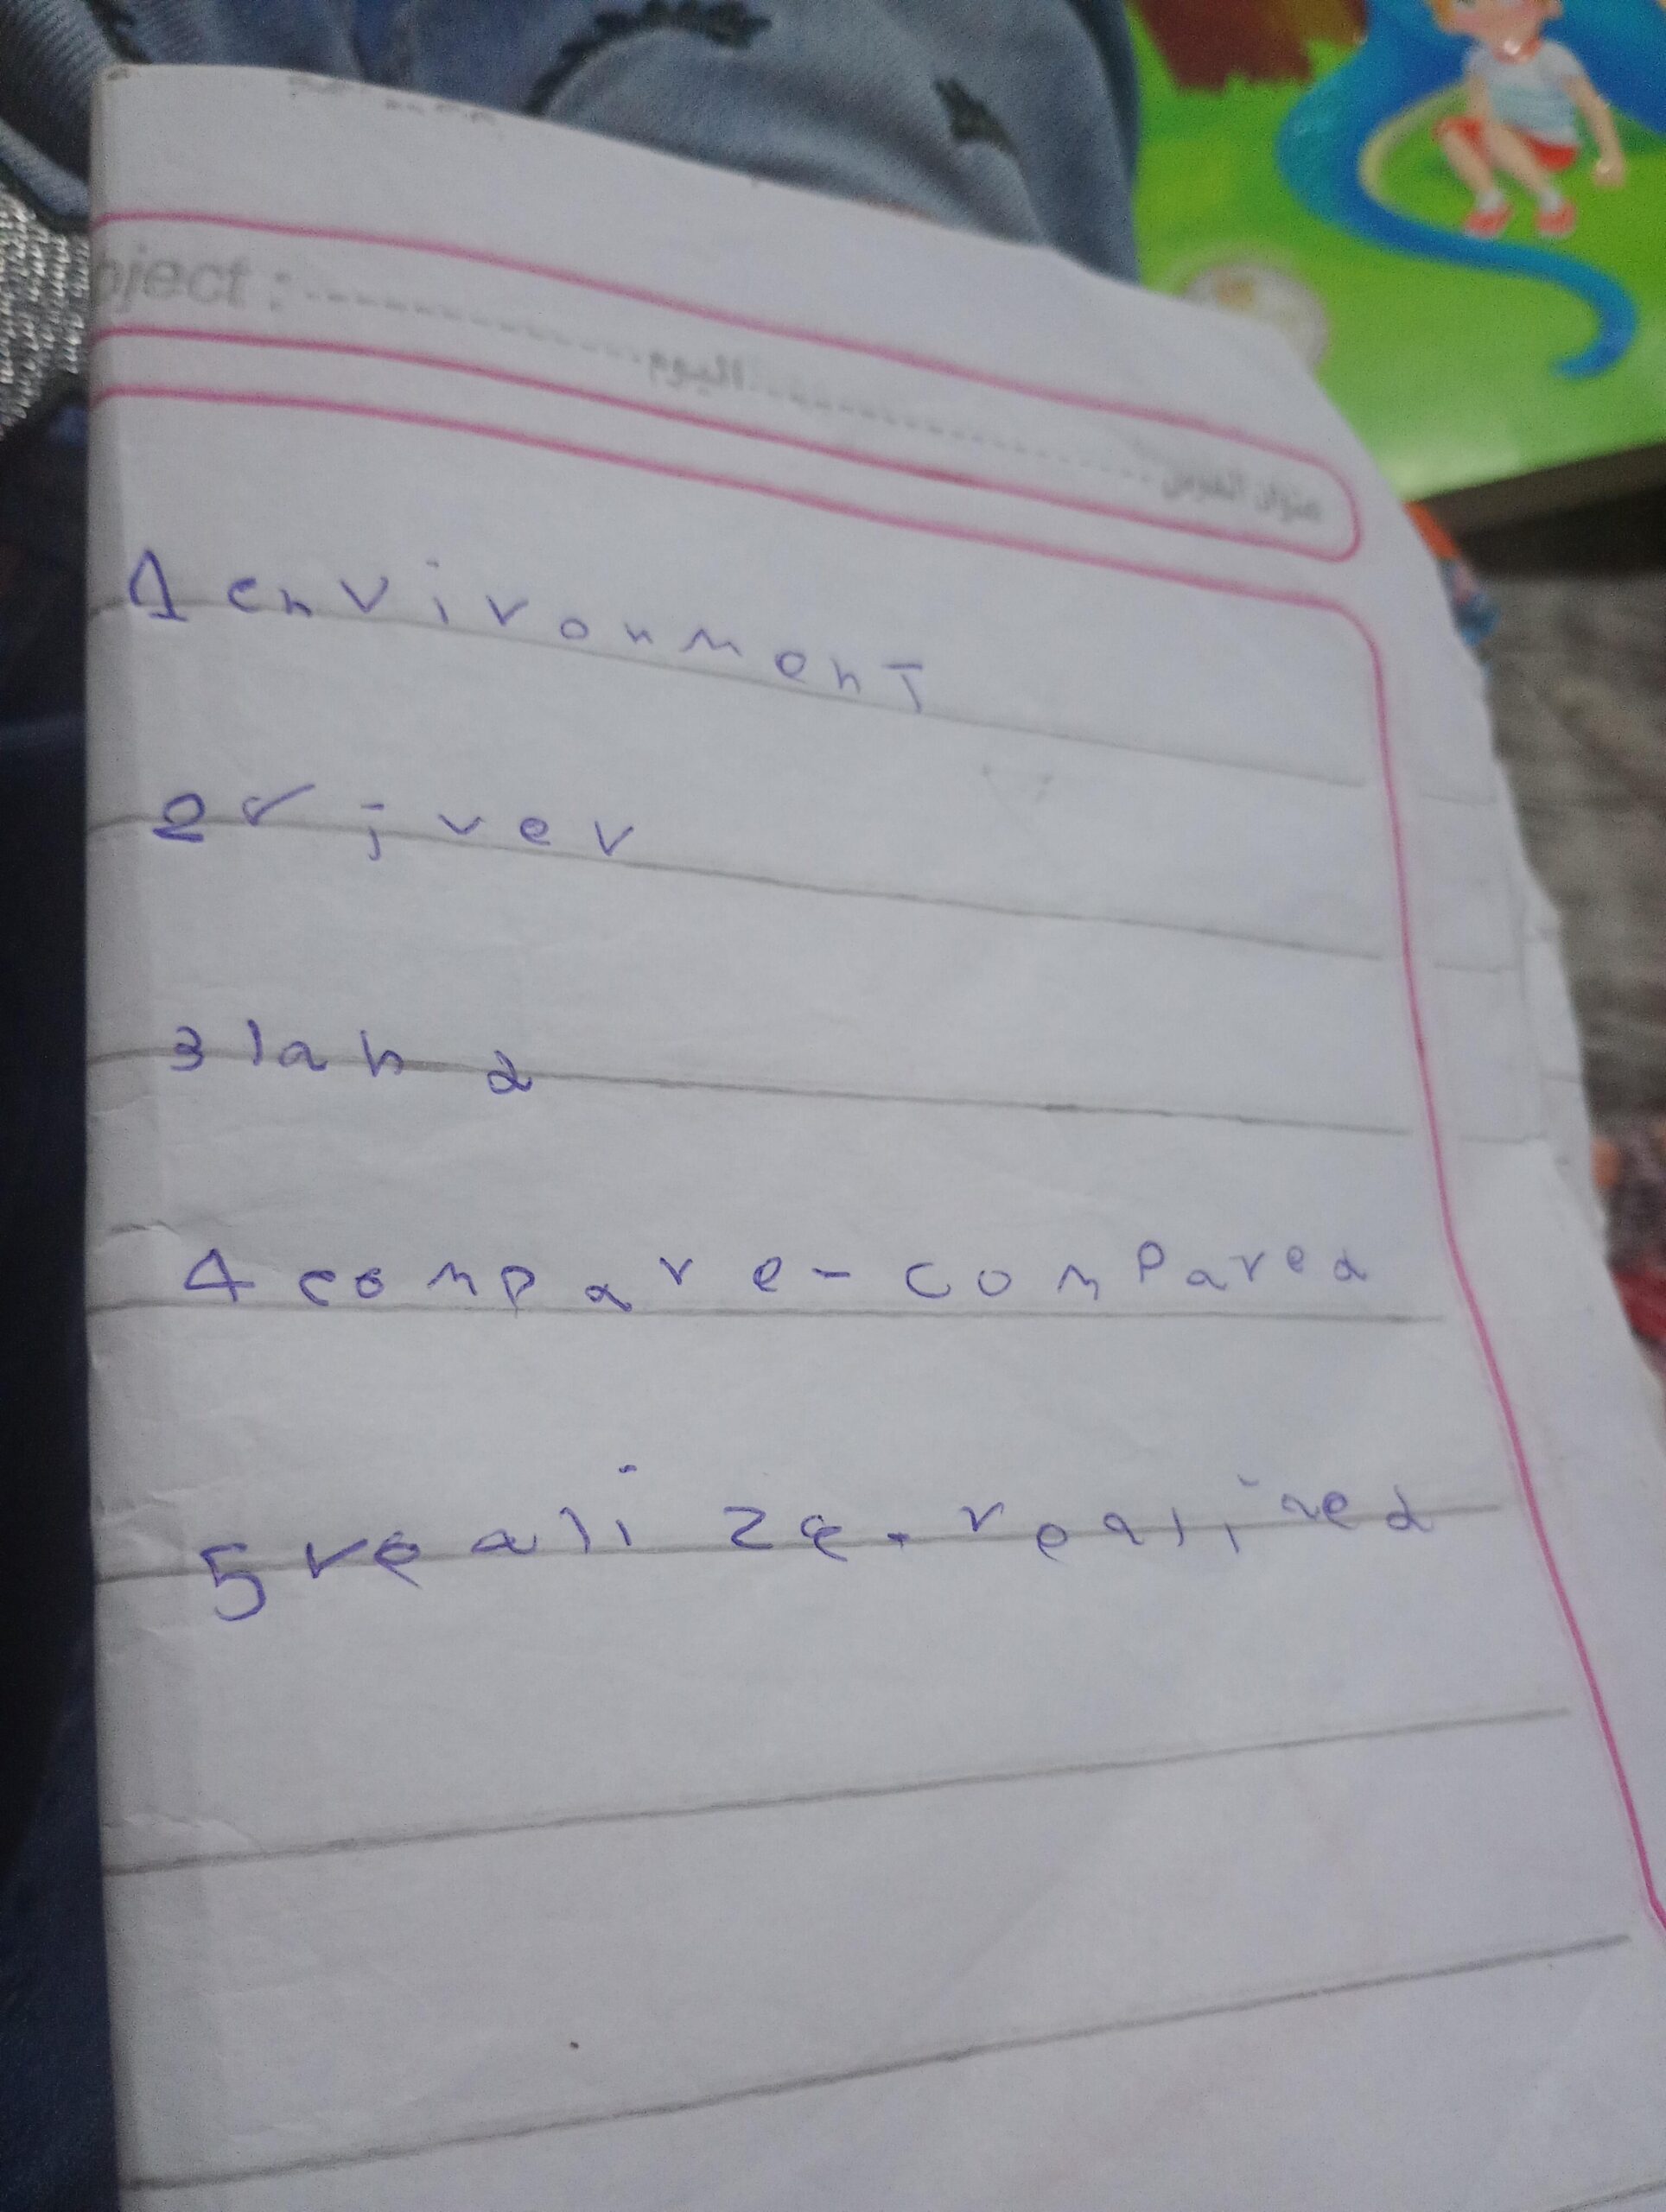 bject :
اليوم
عنوان الدرس
1 environment
2 river
3 land
4 compare - compared
5 realize - realized